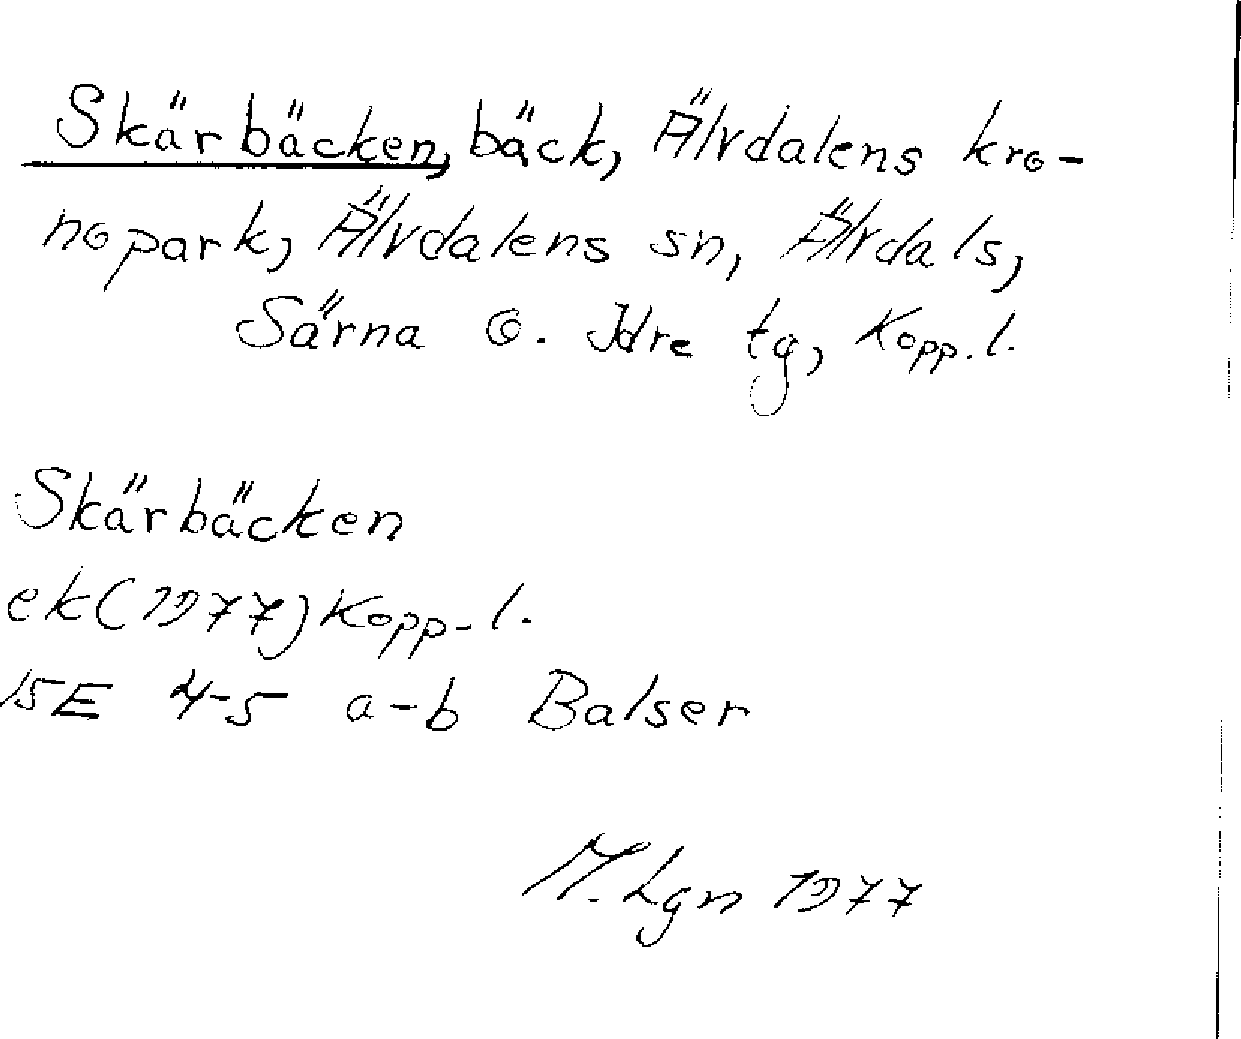 Skärbäcken, bäck, Älvdalens kro-
nopark, Älvdalens sn, Älvdals,
Särna o. Idre tg, Kopp. l.
Skärbäcken
ek (1977) Kopp. l.
15E 4-5 a-b Balser
M. Lgn 1977